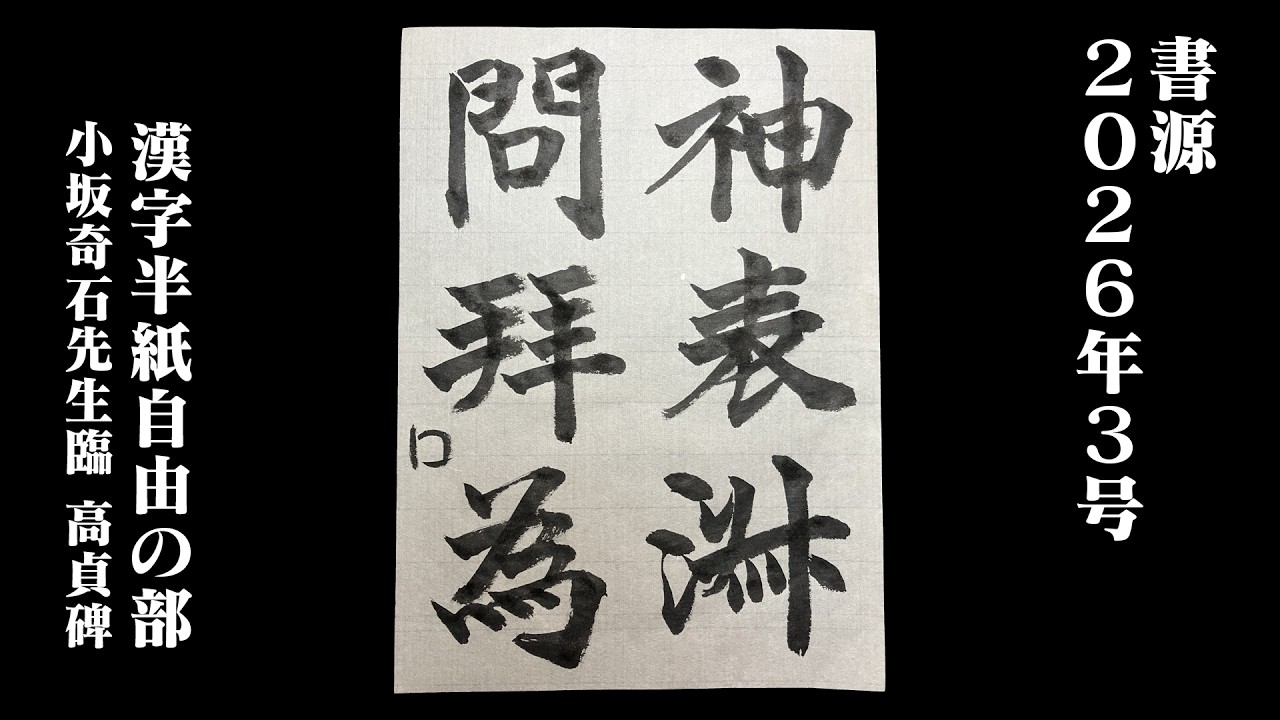 書源
2026年3号
神表
問拜為
口
漢字半紙自由の部
小坂奇石先生臨 高貞碑